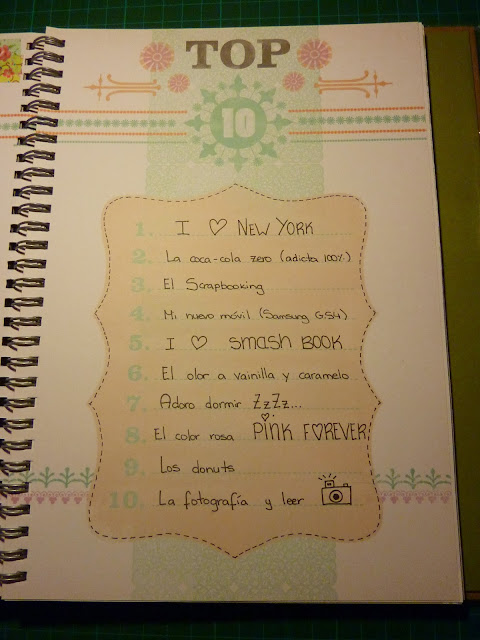 TOP
10
1. I ♡ NEW YORK
2. La coca-cola zero (adicta 100%)
3. El Scrapbooking
4. Mi nuevo móvil (Samsung GS4)
5. I ♡ SMASH BOOK
6. El olor a vainilla y caramelo
7. Adoro dormir ZzZz...
8. El color rosa PINK FOREVER
9. Los donuts
10. La fotografía y leer